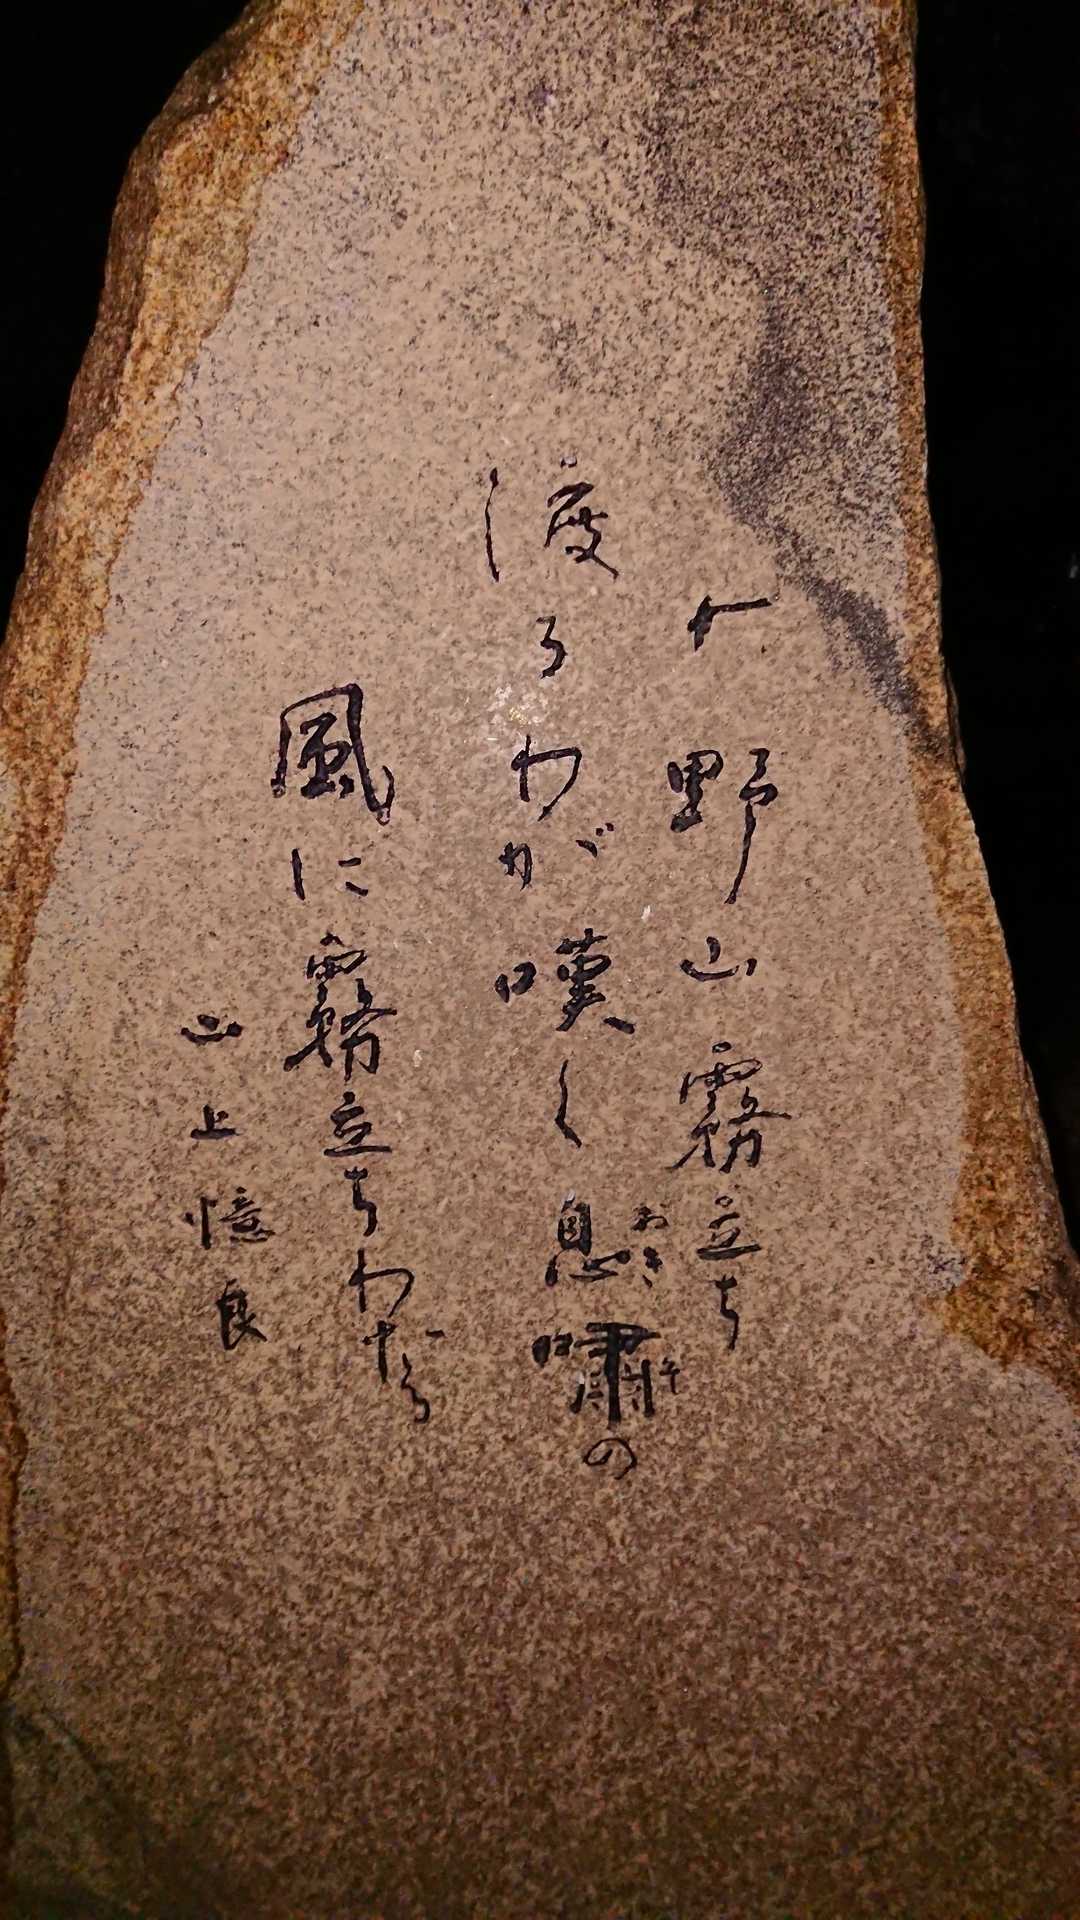 大野山霧立ち
渡るわが嘆く息嘯の
おきそ
風に霧立ちわたる
山上憶良